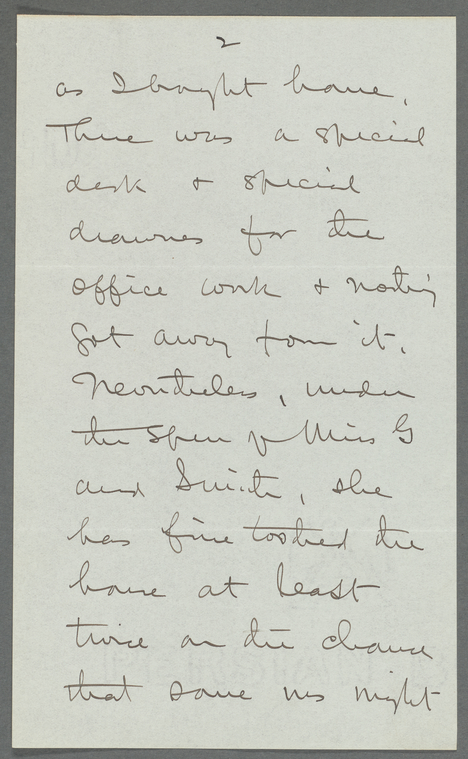 2
as I bought home.
There was a special
desk + special
drawers for the
office work + nothing
got away from it.
Nevertheless, under
the spur of Miss G
and Smith, she
has fine toothed the
house at least
twice on the chance
that some ms might